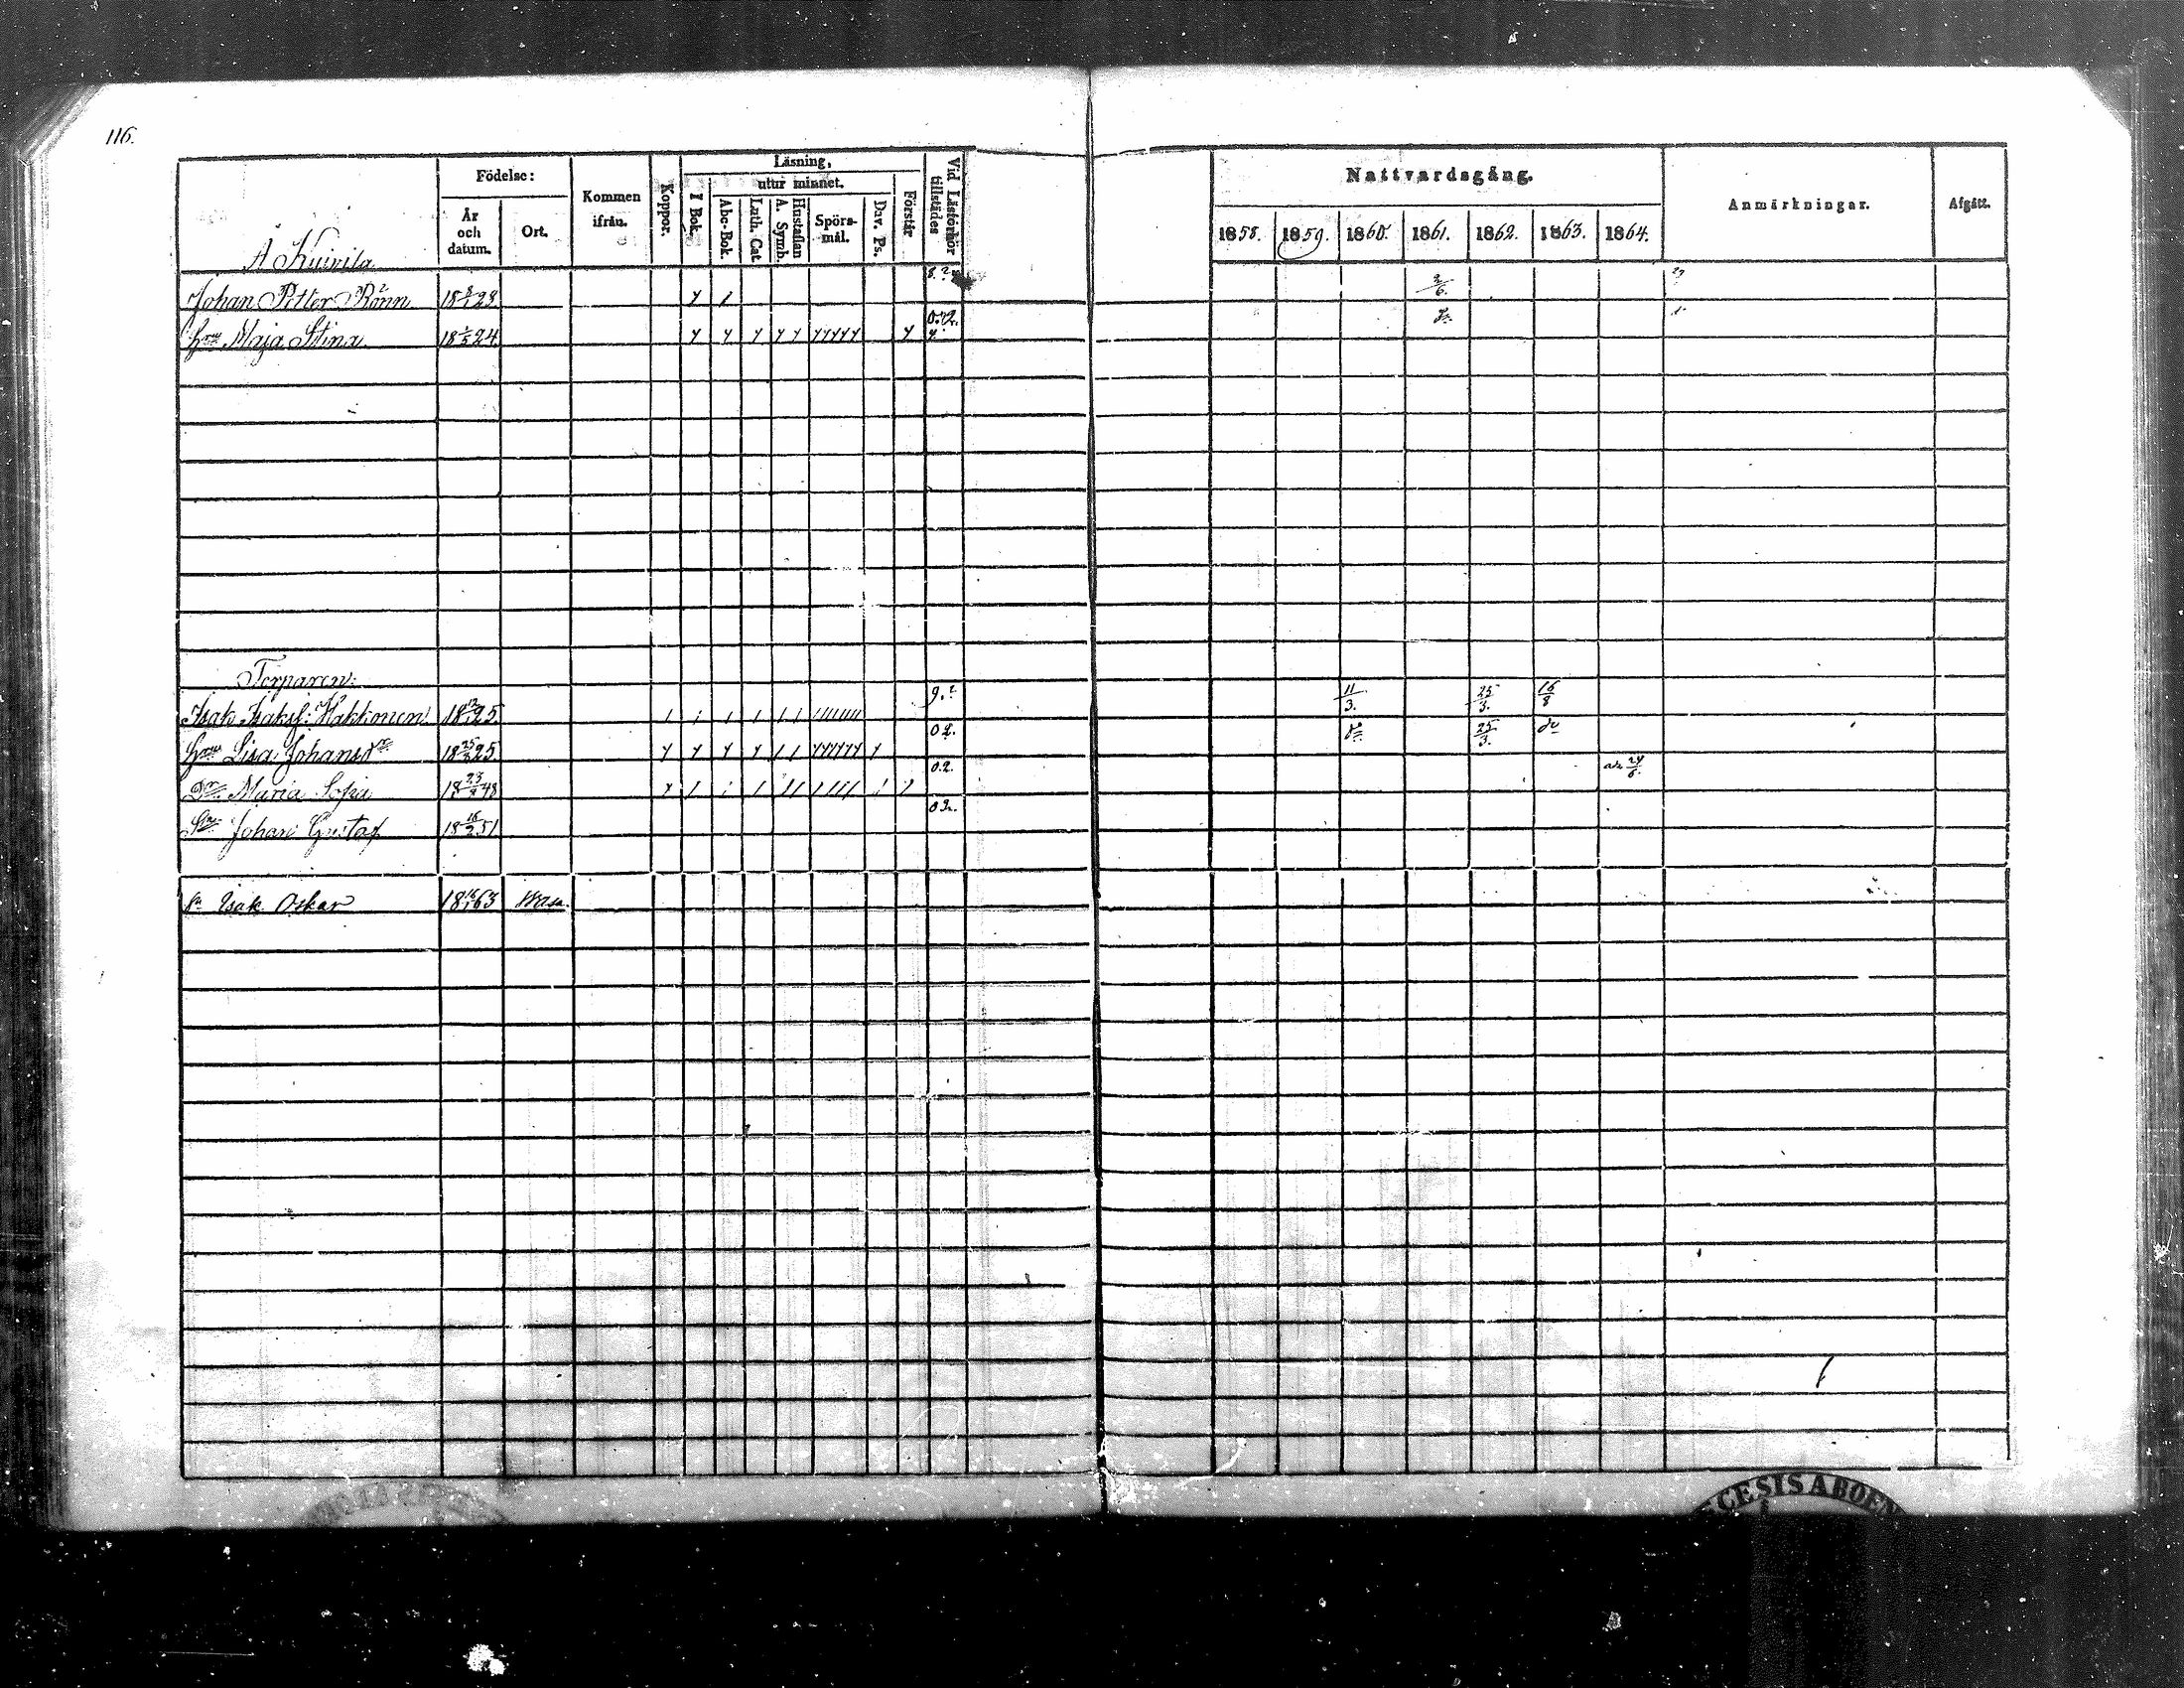 116.
Födelse: Kommen ifrån. Koppor. Läsning, utur minnet. Vid Läsförhör tillstädes Nattvardsgång. Anmärkningar. Afgått.
År och datum. Ort. I Bok. Abc-Bok. Luth. Cat. A. Symb. Hustaflan Spörs-mål. Dav. Ps. Förstår 1858. 1859. 1860. 1861. 1862. 1863. 1864.
Å Kuivila
Johan Petter Rönn 18 28 2/6.
Hru Maja Stina 18 24
Torparen:
Isak Isaksf: Hakkonen 18 25 11/3. 25/3. 16/8
Hru Lisa Johansdr 18 25 02. 25/3. do
Dr Maria Sofia 18 23/2 48 02. 24/6.
Son Johan Gustaf 18 16/2 51 02.
Sn Isak Oskar 18 63 Wasa.
ECESIS ABOEN